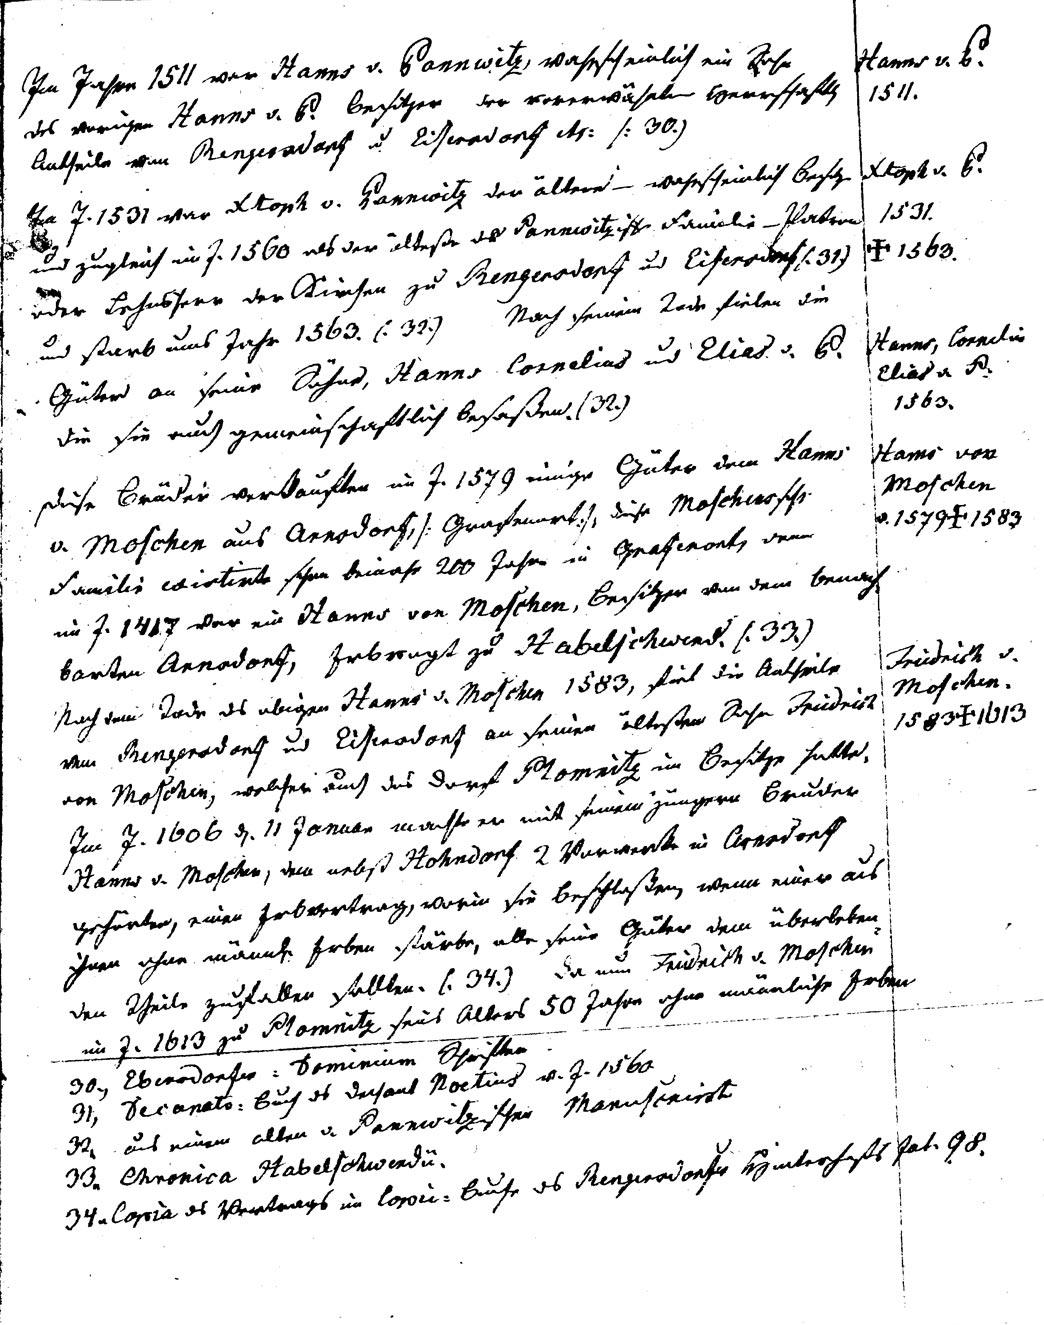 Im Jahre 1511 war Hanns v. Pannwitz, wahrscheinlich ein Sohn
des vorigen Hanns v. P. Besitzer der vorerwähnten herrschaftl.
Antheile von Rengersdorf u. Eisersdorf etc: (: 30.)
Im J. 1531 war Xtoph v. Pannwitz der ältere – wahrscheinlich Besitzer
und zugleich im J. 1560 als der älteste der Pannwitzisch. Familie – Patron
oder Lehnsherr der Kirchen zu Rengersdorf und Eisersdorf (: 31.)
und starb ums Jahr 1563. (: 32.) Nach seinem Tode fielen die
Güter an seine Söhne, Hanns Cornelius und Elias v. P.
die sie auch gemeinschaftlich besaßen. (32.)
Diese Brüder verkauften im J. 1579 einige Güter dem Hanns
v. Moschen aus Arnsdorf, (: Grafenort :), diese Moschensche
Familie existirte schon beinahe 200 Jahre in Grafenort, denn
im J. 1417 war ein Hanns von Moschen, Besitzer von dem benach
barten Arnsdorf, Erbvogt zu Habelschwerd. (: 33.)
Nach dem Tode des obigen Hanns v. Moschen 1583, fiel die Antheile
von Rengersdorf und Eisersdorf an seinen ältesten Sohn Friedrich
von Moschen, welcher auch das Dorf Plomnitz im Besitze hatte.
Im J. 1606 d. 11 Januar machte er mit seinem jüngern Bruder
Hanns v. Moschen, dem nebst Hohndorf 2 Vorwerke in Arnsdorf
gehörten, einen Erbvertrag, worin sie beschloßen, wenn einer aus
ihnen ohne männl. Erben stärbe, alle seine Güter dem überleben=
den Theile zufallen sollten. (: 34.) Da nun Friedrich v. Moschen
im J. 1613 zu Plomnitz seines Alters 50 Jahre ohne männliche Erben
30., Ebersdorfer = Dominium Schriften
31, Decanats = Buch des Dechant Noetius v. J. 1560
32, aus einem alten v. Pannwitzischen Manuscript
33. Chronica Habelschwerdü.
34. Copia des Vertrags im Copei = Buche des Rengersdorfer fol. 98.
Hanns v. P.
1511.
Xtoph v. P.
1531.
✝ 1563.
Hanns, Cornelius
Elias v. P.
1563.
Hanns von
Moschen
v. 1579 ✝ 1583
Friedrich v.
Moschen.
1583 ✝ 1613